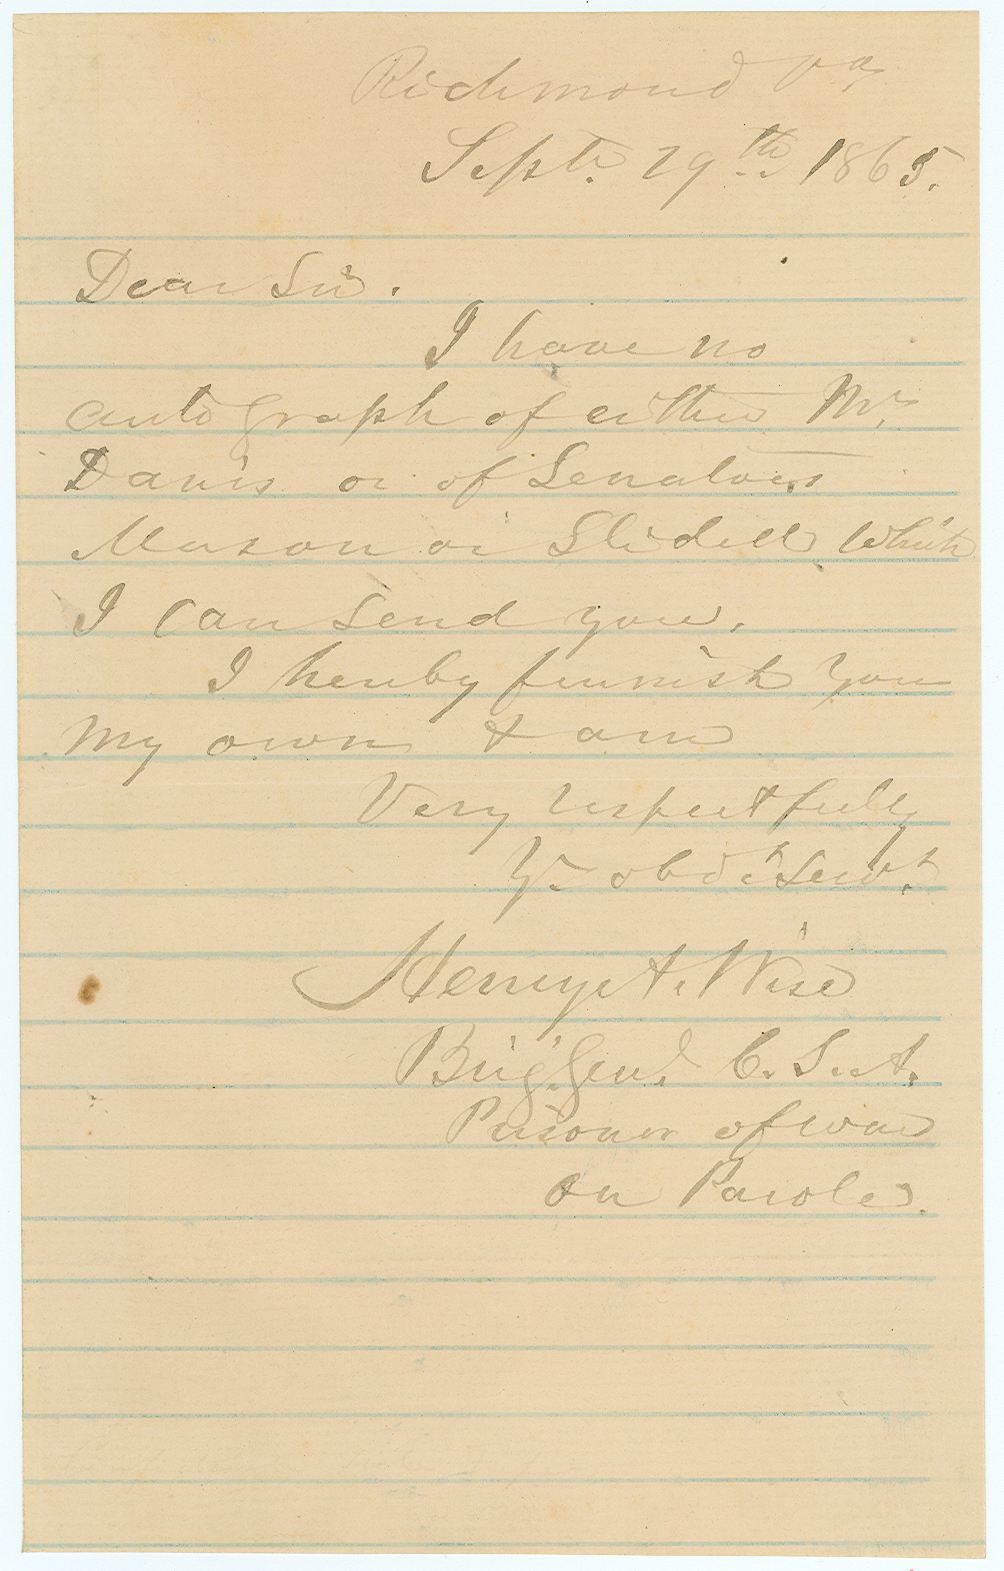 Richmond Va,
Sept. 29th 1865.
Dear Sir.
I have no
autograph of either Mr.
Davis or of Senators
Mason or Slidell which
I can send you.
I hereby furnish you
my own & am
Very respectfully
Yr obdt Servt.
Henry A. Wise
Brig. Genl. C. S. A.
Prisoner of war
on Parole.